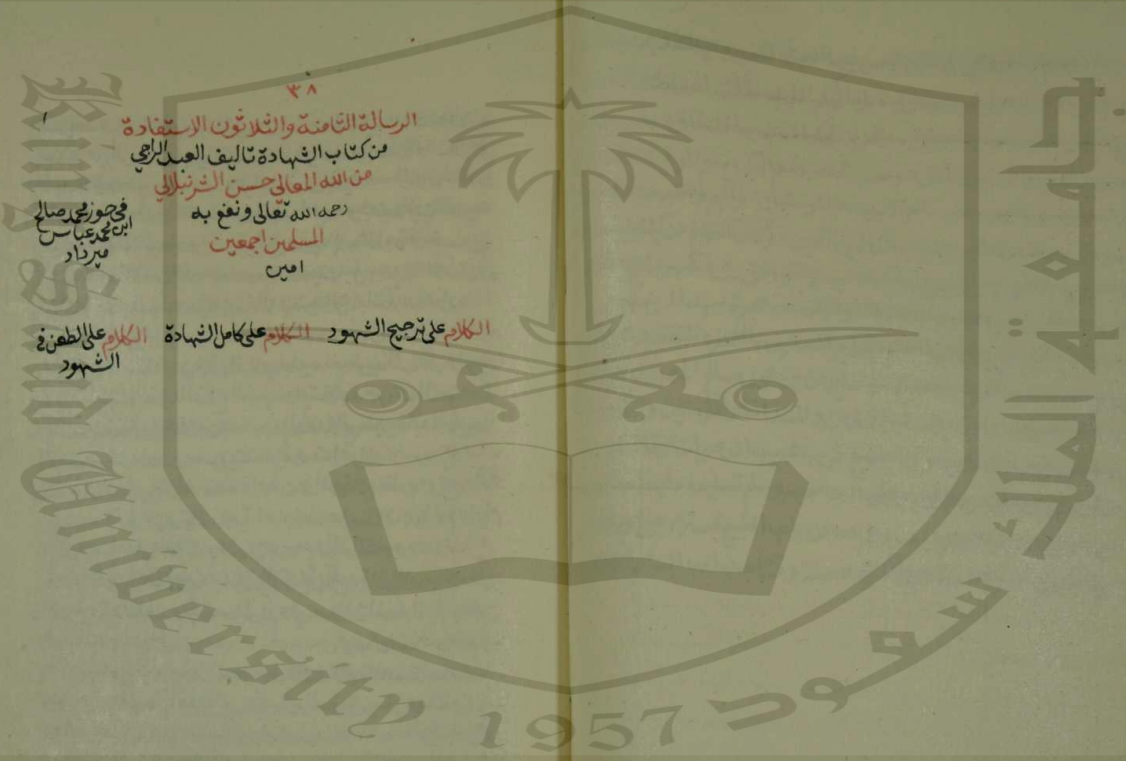 ٣٨
١
الرسالة الثامنة والثلاثون الاستفادة
من كتاب الشهادة تاليف العبد الراجي
من الله المعالي حسن الشرنبلالي
رحمه الله تعالى ونفع به
المسلمين اجمعين
امين
في حوز محمد صالح
ابن محمد عباس
ميرداد
الكلام على ترجيح الشهود الكلام على كامل الشهادة الكلام على الطعن في
الشهود
جامعة الملك سعود
King Saud University 1957